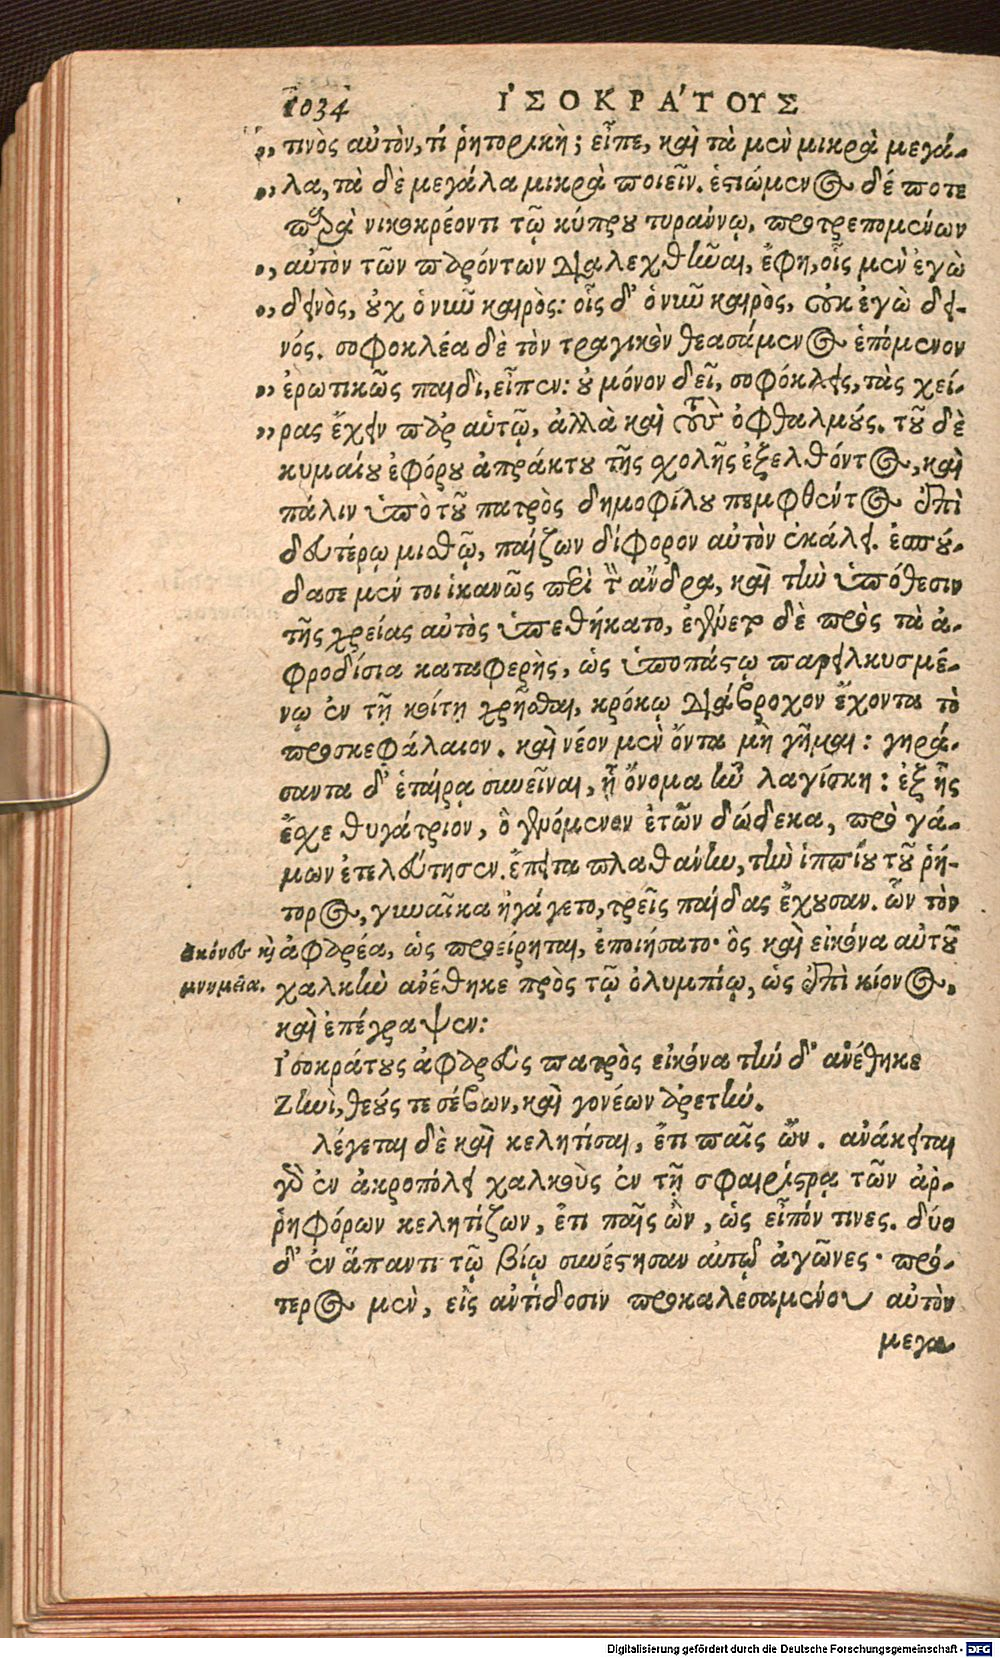 1034 ἸΣΟΚΡΆΤΟΥΣ
,, τινὸς αὐτὸν, τί ῥητορικὴ; εἶπε, καὶ τὰ μὲν μικρὰ μεγά-
,, λα, τὰ δὲ μεγάλα μικρὰ ποιεῖν. ἑστιώμενος δέ ποτε
παρὰ νικοκρέοντι τῷ κύπρου τυράννῳ, προτρεπομένων
,, αὐτὸν τῶν παρόντων διαλεχθῆναι, ἔφη, οἷς μὲν ἐγὼ
,, δεινὸς, οὐχ ὁ νῦν καιρὸς: οἷς δ' ὁ νῦν καιρὸς, οὐκ ἐγὼ δει-
νός. σοφοκλέα δὲ τὸν τραγικὸν θεασάμενος ἑπόμενον
,, ἐρωτικῶς παιδὶ, εἶπεν: οὐ μόνον δεῖ, σοφόκλεις, τὰς χεί-
,, ρας ἔχειν παρ αὑτῷ, ἀλλὰ καὶ τοὺς ὀφθαλμούς. τοῦ δὲ
κυμαίου ἐφόρου ἀπράκτου τῆς σχολῆς ἐξελθόντος, καὶ
πάλιν ὑπὸ τοῦ πατρὸς δημοφίλου πεμφθέντος ἐπὶ
δευτέρῳ μισθῷ, παίζων δίφορον αὐτὸν ἐκάλει. ἐσπού-
δασε μέν τοι ἱκανῶς περὶ τὸν ἄνδρα, καὶ τὴν ὑπόθεσιν
τῆς χρείας αὐτὸς ὑπεθήκατο, ἐγένετο δὲ πρὸς τὰ ἀ-
φροδίσια καταφερὴς, ὡς ὑποπάστῳ παρειλκυσμέ-
νῳ ἐν τῇ κοίτῃ χρῆσθαι, κρόκῳ διάβροχον ἔχοντα τὸ
προσκεφάλαιον. καὶ νέον μὲν ὄντα μὴ γῆμαι: γηρά-
σαντα δ' ἑταίρᾳ συνεῖναι, ᾗ ὄνομα ἦν λαγίσκη: ἐξ ἧς
ἔσχε θυγάτριον, ὃ γενόμενον ἐτῶν δώδεκα, πρὸ γά-
μων ἐτελεύτησεν. ἔπειτα πλαθάνην, τὴν ἱππίου τοῦ ῥή-
τορος, γυναῖκα ἠγάγετο, τρεῖς παίδας ἔχουσαν. ὧν τὸν
εἰκόνες καὶ ἀφαρέα, ὡς προείρηται, ἐποιήσατο· ὃς καὶ εἰκόνα αὐτοῦ
μνημεῖα. χαλκῆν ἀνέθηκε πρὸς τῷ ὀλυμπίῳ, ὡς ἐπὶ κίονος,
καὶ ἐπέγραψεν:
Ἰσοκράτους ἀφαρεὺς πατρὸς εἰκόνα τήν δ' ἀνέθηκε
Ζηνὶ, θεούς τε σέβων, καὶ γονέων ἀρετήν.
λέγεται δὲ καὶ κελητίσαι, ἔτι παῖς ὤν. ἀνάκειται
γὰρ ἐν ἀκροπόλει χαλκοὺς ἐν τῇ σφαιρίστρᾳ τῶν ἀρ-
ῥηφόρων κελητίζων, ἔτι παῖς ὢν, ὡς εἶπόν τινες. δύο
δ' ἐν ἅπαντι τῷ βίῳ συνέστησαν αὐτῷ ἀγῶνες· πρό-
τερος μὲν, εἰς ἀντίδοσιν προκαλεσαμένου αὐτὸν
μεγα
Digitalisierung gefördert durch die Deutsche Forschungsgemeinschaft - DFG